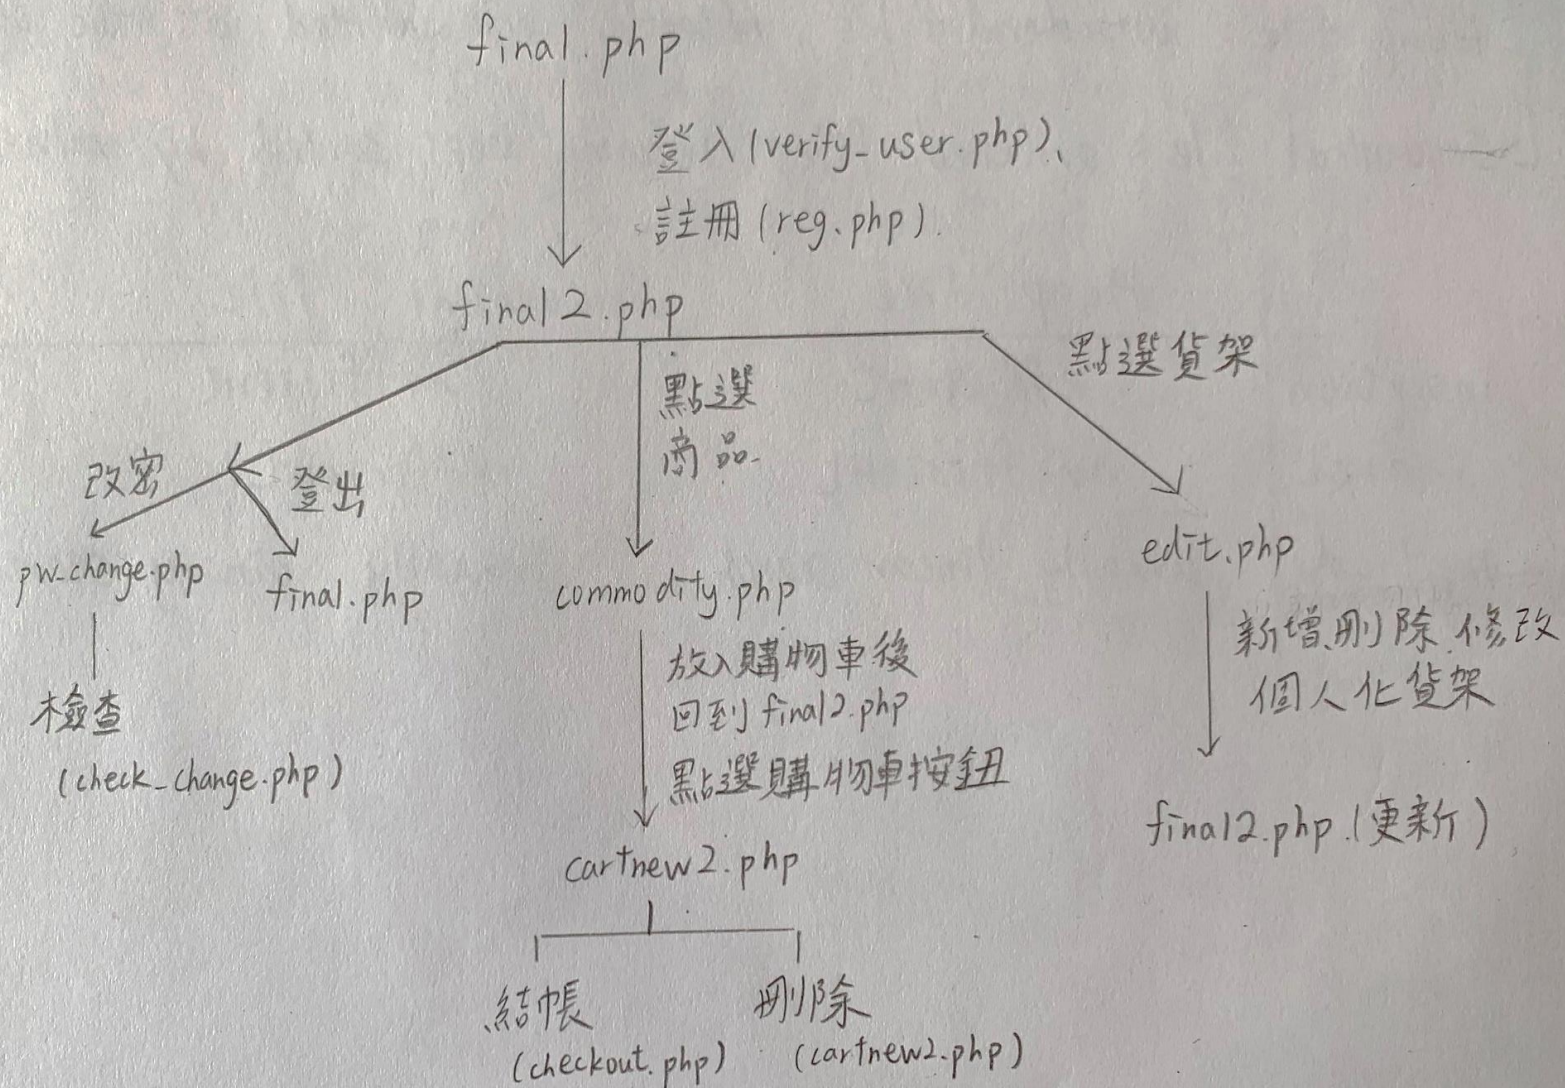 final.php
登入(verify_user.php)、
註冊(reg.php).
final2.php
點選貨架
點選
商品
改密
登出
pw_change.php
final.php
commodity.php
edit.php
檢查
(check_change.php)
放入購物車後
回到final2.php
點選購物車按鈕
新增、刪除、修改
個人化貨架
cartnew2.php
final2.php.(更新)
結帳
(checkout.php)
刪除
(cartnew2.php)